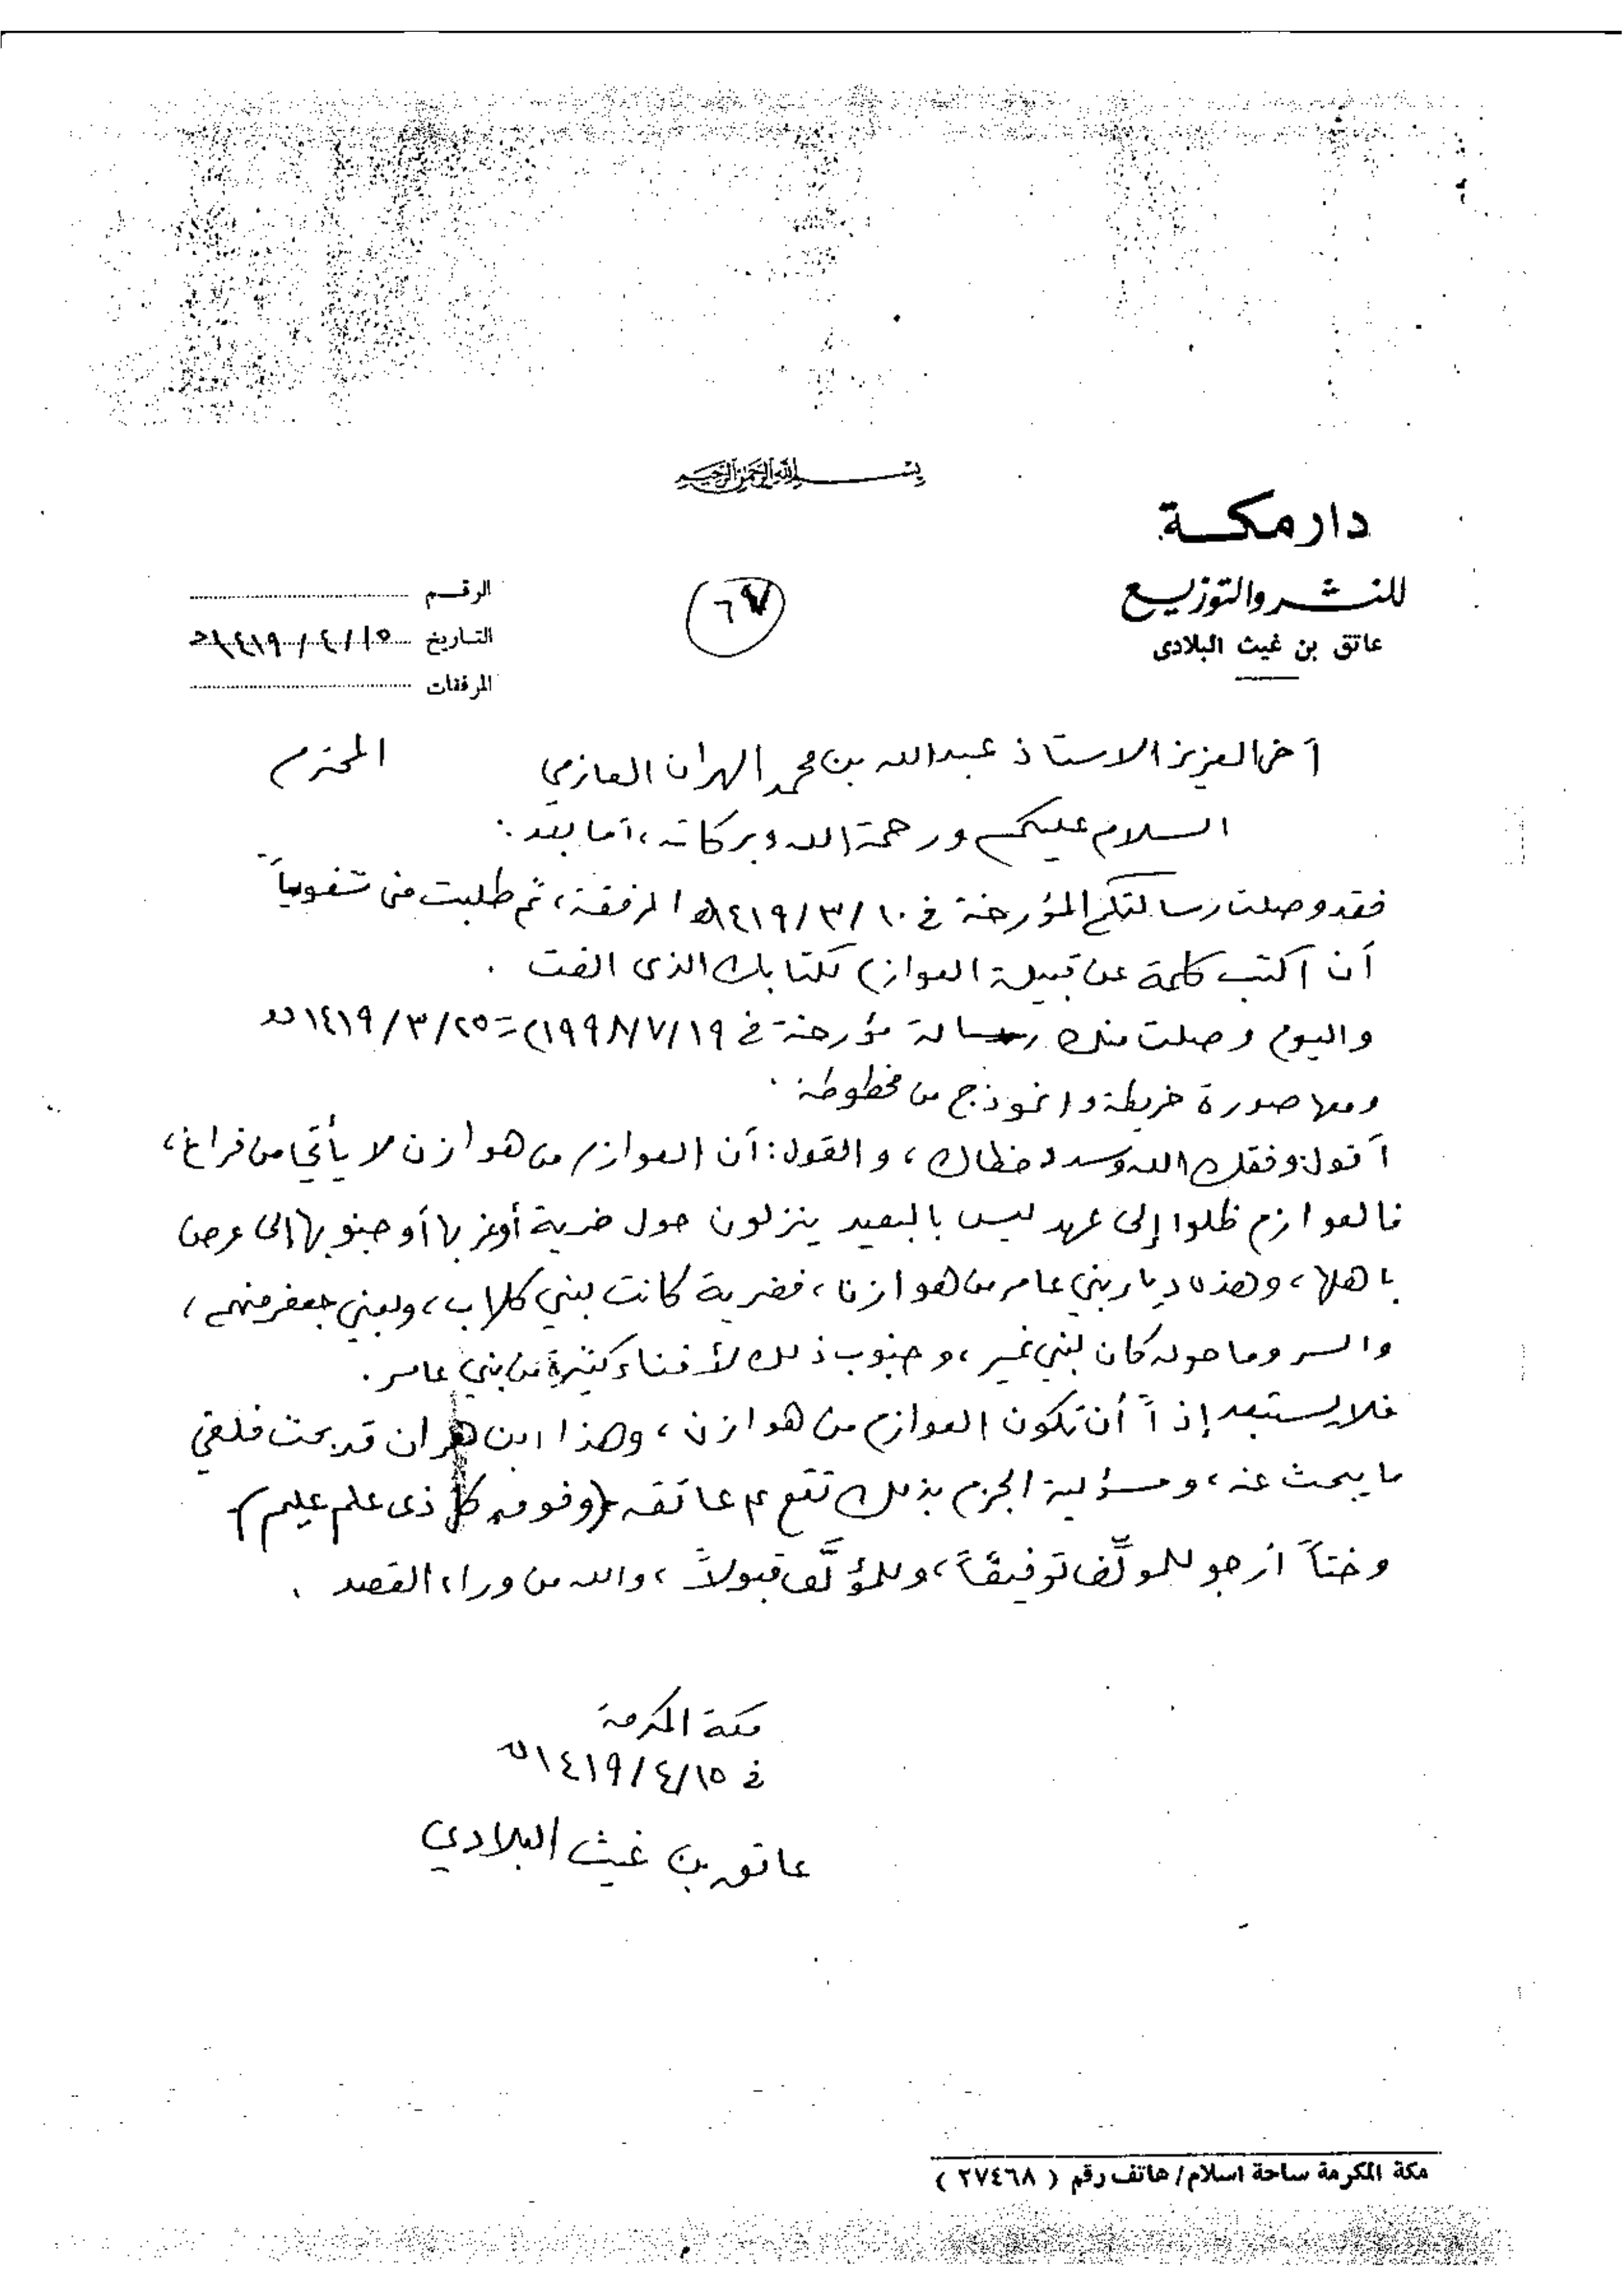 بسم الله الرحمن الرحيم
دار مكة
للنشر والتوزيع
عاتق بن غيث البلادى
الرقم
التاريخ ١٥ / ٤ / ١٤١٩هـ
المرفقات
٦٧
أخي العزيز الاستاذ عبدالله بن محمد الهران العازمي المحترم
السلام عليكم ورحمة الله وبركاته، أما بعد:
فقد وصلت رسالتكم المؤرخة في ١٠ /٣ /١٤١٩هـ المرفقة، ثم طلبت مني شفوياً
أن أكتب كلمة عن قبيلة العوازم لكتابك الذى الفت .
واليوم وصلت منك رسالة مؤرخة في ١٩/ ٧/ ١٩٩٨م = ٢٥/ ٣/ ١٤١٩هـ
ومعها صورة خريطة وانموذج من مخطوطة .
أقول: وفقك الله وسدد خطاك، والقول: أن العوازم من هوازن لا يأتي من فراغ،
فالعوازم ظلوا إلى عهد ليس بالبعيد ينزلون حول ضرية أو غربها أو جنوبها إلى عرض
باهلة، وهذه ديار بني عامر من هوازن، فضرية كانت لبني كلاب، ولبني جعفر منهم،
والسر وما حوله كان لبني نمير، وجنوب ذلك لأفناء كثيرة من بني عامر.
فلا يستبعد إذاً أن تكون العوازم من هوازن، وهذا ابن هران قد بحث فلقي
ما يبحث عنه، ومسؤلية الجزم بذلك تقع ع عاتقه (وفوق كل ذى علم عليم)
وختاً أرجو للمولِّف توفيقاً، وللمؤلَّف قبولاً، والله من وراء القصد .
مكة المكرمة
في ١٥ /٤ /١٤١٩هـ
عاتق بن غيث البلادي
مكة المكرمة ساحة اسلام / هاتف رقم ( ٢٧٤٦٨ )